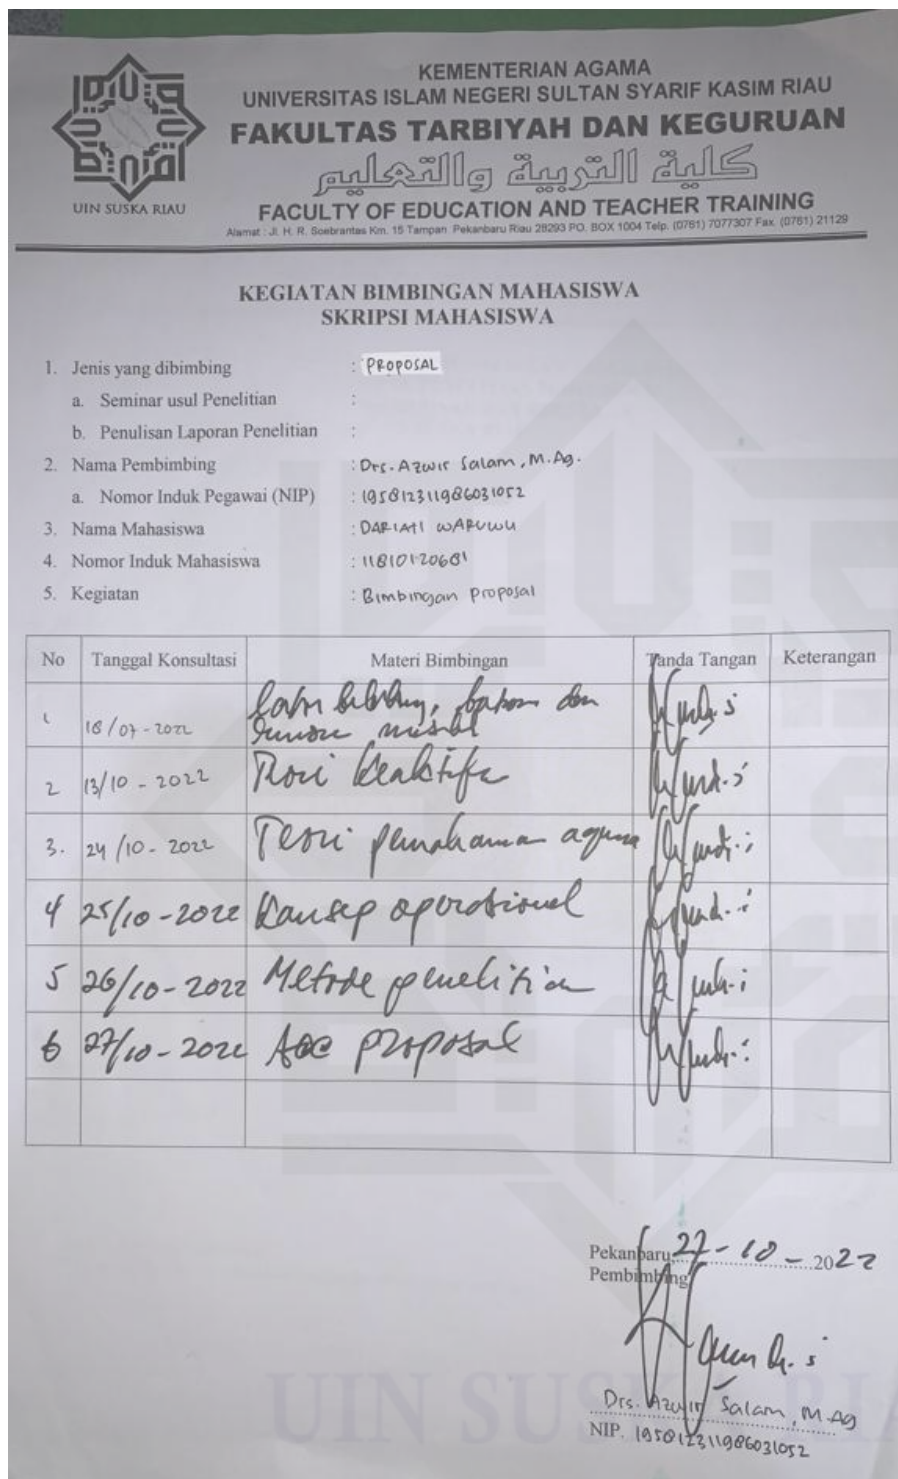 KEMENTERIAN AGAMA
UNIVERSITAS ISLAM NEGERI SULTAN SYARIF KASIM RIAU
FAKULTAS TARBIYAH DAN KEGURUAN
كلية التربية والتعليم
FACULTY OF EDUCATION AND TEACHER TRAINING
Alamat : Jl. H. R. Soebrantas Km. 15 Tampan Pekanbaru Riau 28293 PO. BOX 1004 Telp. (0761) 7077307 Fax. (0761) 21129
UIN SUSKA RIAU
KEGIATAN BIMBINGAN MAHASISWA
SKRIPSI MAHASISWA
1. Jenis yang dibimbing : PROPOSAL
a. Seminar usul Penelitian :
b. Penulisan Laporan Penelitian :
2. Nama Pembimbing : Drs. Azwir Salam, M.Ag.
a. Nomor Induk Pegawai (NIP) : 195812311986031052
3. Nama Mahasiswa : DARIATI WARUWU
4. Nomor Induk Mahasiswa : 11810120681
5. Kegiatan : Bimbingan Proposal
No Tanggal Konsultasi Materi Bimbingan Tanda Tangan Keterangan
1 18/07-2022
2 13/10-2022 Teori
3. 24/10-2022 Teori pemahaman agama
4 25/10-2022 Konsep operasional
5 26/10-2022 Metode penelitian
6 27/10-2022 Acc proposal
Pekanbaru, 27-10-2022
Pembimbing
Drs. Azwir Salam, M.Ag
NIP. 195812311986031052
UIN SUSKA RIA